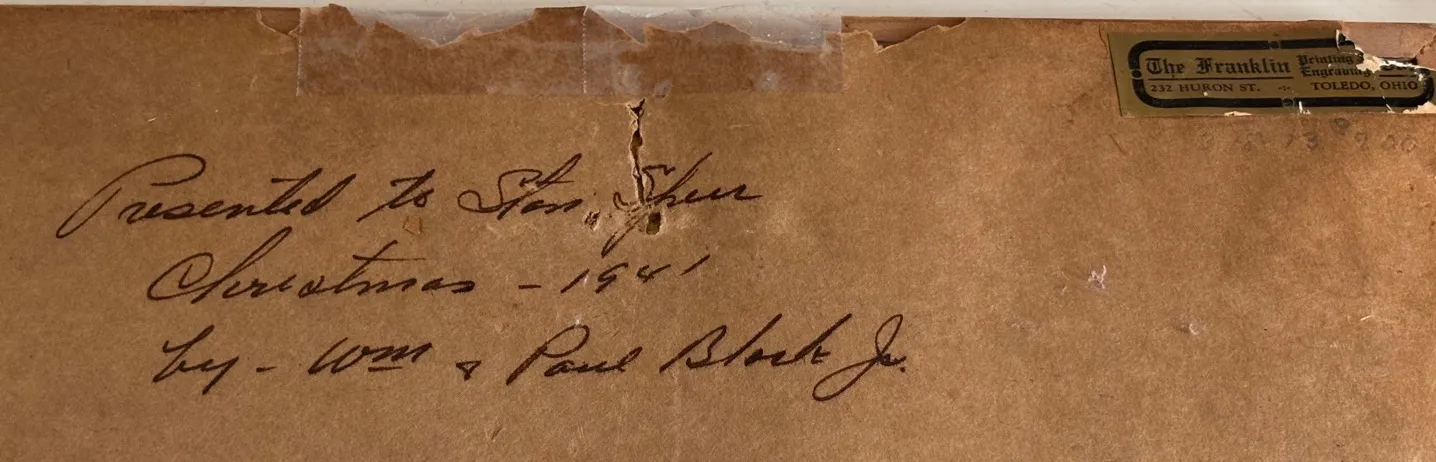 Presented to Stan. Speer
Christmas - 1941
by - Wm & Paul Block Jr.
The Franklin Printing Engraving
232 HURON ST. TOLEDO, OHIO